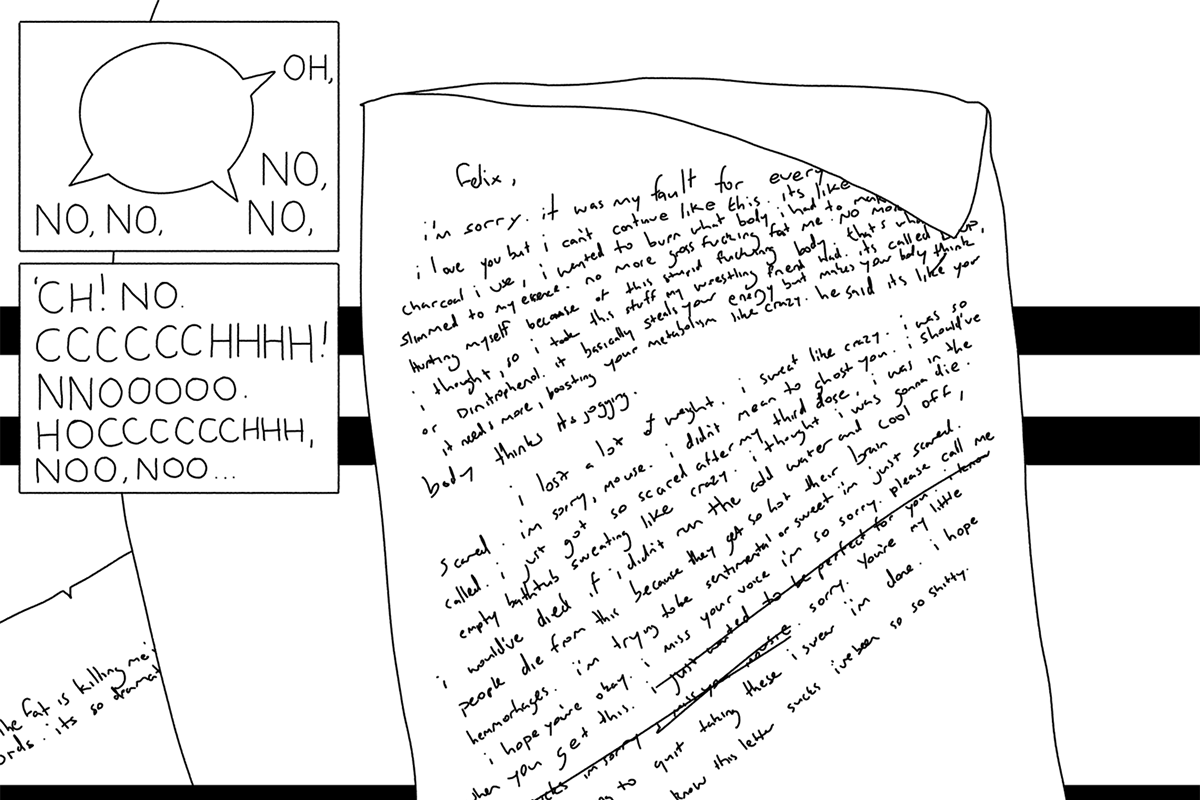 OH,
NO,
NO, NO,
NO,
'CH! NO.
CCCCCCHHHH!
NNOOOOO.
HOCCCCCCCHHH,
NOO, NOO...
felix,
i'm sorry. it was my fault for every
i love you but i can't contiuve like this. its like
charcoal i use, i wanted to burn what body i had to mak
slimmed to my esence. no more gross fucking fat me. no mor
hurting myself because of this stupid fuckving body. that's wha
i thought, so i took this stuff my wrestling frient had. its called
or Dinitrophenol. it basically steals your energy but makes your body think
it needs more, boosting your metabolism like crazy. he said its like your
body thinks its jogging.
i lost a lot of weight. i sweat like crazy. i was so
scared. i'm sorry, mouse. i didn't mean to ghost you. i should've
called. i just got so scared after my third dose, i was in the
empty bathtub sweating like crazy. i thought i was gonna die.
i would've died if i didn't run the cold water and cool off,
people die from this because they get so hot their brain
hemmorhages. i'm trying to be sentimental or sweet i'm just scared.
i hope you're okay. i miss your voice i'm so sorry. please call me
when you get this. i just wanted to be perfect for you i know
sucks im sorry i miss you mousie. sorry. You're my little
to quit taking these i swear i'm done. i hope
know this letter sucks i've been so so shitty.
the fat is killing me'
ords. its so dramat